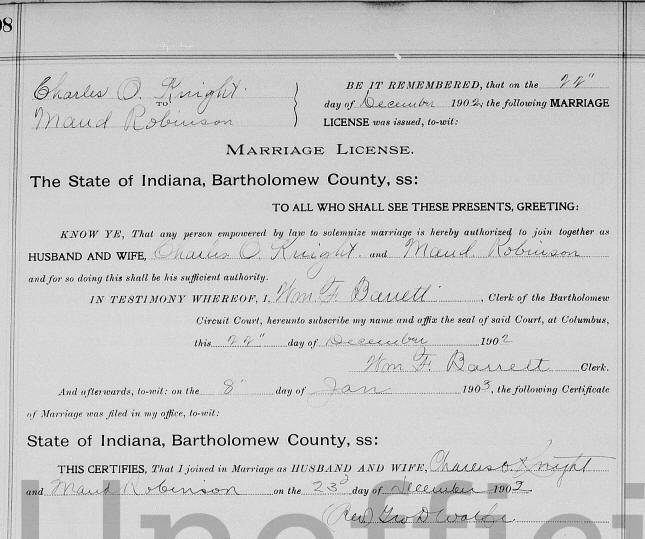 08
Charles O. Knight.
TO
Maud Robinson
BE IT REMEMBERED, that on the 22"
day of December 1902, the following MARRIAGE
LICENSE was issued, to-wit:
MARRIAGE LICENSE.
The State of Indiana, Bartholomew County, ss:
TO ALL WHO SHALL SEE THESE PRESENTS, GREETING:
KNOW YE, That any person empowered by law to solemnize marriage is hereby authorized to join together as
HUSBAND AND WIFE, Charles O. Knight. and Maud Robinson
and for so doing this shall be his sufficient authority.
IN TESTIMONY WHEREOF, I, Wm F. Barrett, Clerk of the Bartholomew
Circuit Court, hereunto subscribe my name and affix the seal of said Court, at Columbus,
this 22" day of December 1902
Wm F. Barrett Clerk.
And afterwards, to-wit: on the 8" day of Jan 1903, the following Certificate
of Marriage was filed in my office, to-wit:
State of Indiana, Bartholomew County, ss:
THIS CERTIFIES, That I joined in Marriage as HUSBAND AND WIFE, Charles O. Knight
and Maud Robinson on the 23d day of December 1902
(Rev) Geo D
Unoffici